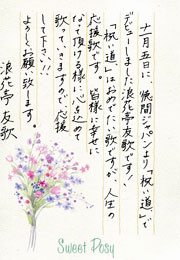 十一月五日に、徳間ジャパンより「祝い道」で
デビューしました浪花亭友歌です!
「祝い道」はおめでたい歌ですが、人生の
応援歌です。皆様に幸せに
なって頂ける様に心を込めて
歌っていきますので、応援
して下さい!!
よろしくお願い致します。
浪花亭友歌
Sweet Posy